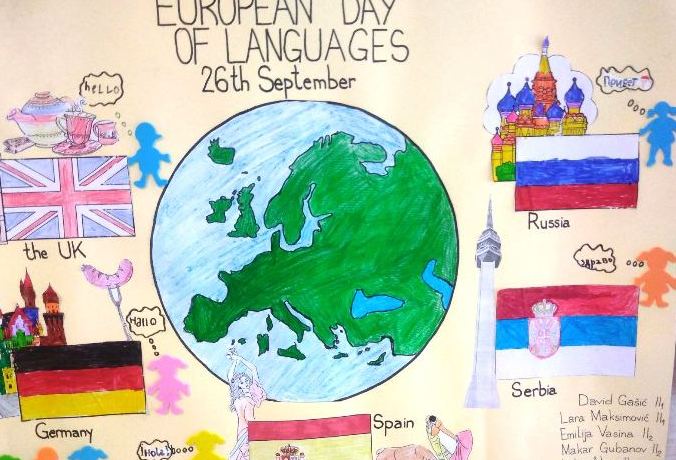 EUROPEAN DAY
OF LANGUAGES
26th September
hello
Привет
the UK
Russia
Hallo
здраво
Germany
Serbia
Spain
¡Hola!
David Gašić II₁
Lara Maksimović II₁
Emilija Vasina II₂
Makar Gubanov II₂